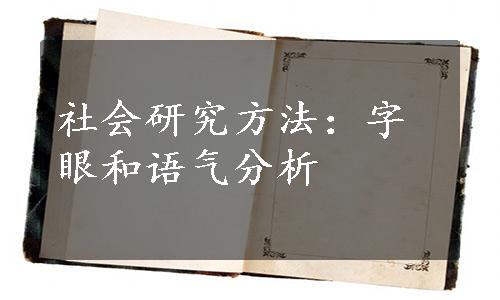 社会研究方法：字
眼和语气分析